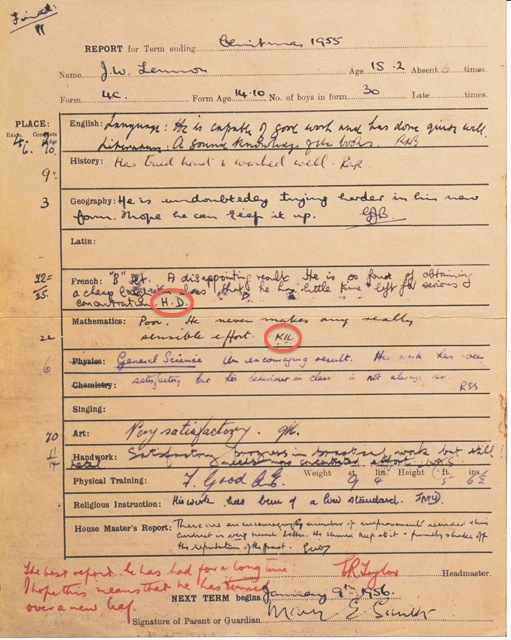 Final
REPORT for Term ending Christmas 1955
Name J.W. Lennon Age 15·2 Absent 6 times.
Form 4C. Form Age 14·10 No. of boys in form 30 Late times.
PLACE:
English: Language: He is capable of good work and has done quite well.
Literature: A sound knowledge of the books. RNB
9= History: Has tried hard & worked well.
3 Geography: He is undoubtedly trying harder in his new
form. I hope he can keep it up.
Latin:
22= French: "B" Set. A disappointing result. He is so fond of obtaining
25. a cheap class that he has little time left for serious
concentration. H.D.
Mathematics: Poor. He never makes any really
22 sensible effort. KIL
6 Physics: General Science An encouraging result. His work has been
Chemistry: satisfactory but his behaviour in class is not always so. RSS
Singing:
20 Art: Very satisfactory.
Handwork: Satisfactory progress in work but still
Physical Training: F. Good Weight 9 st. 4 lbs. Height 5 ft. 6½ ins.
Religious Instruction: His work has been of a low standard.
House Master's Report: There are an encouraging number of improvements
conduct is very much better. He should keep at it -
the reputation of the past.
The best report he has had for a long time.
I hope this means that he has turned
over a new leaf.
Headmaster.
NEXT TERM begins January 9th, 1956.
Signature of Parent or Guardian